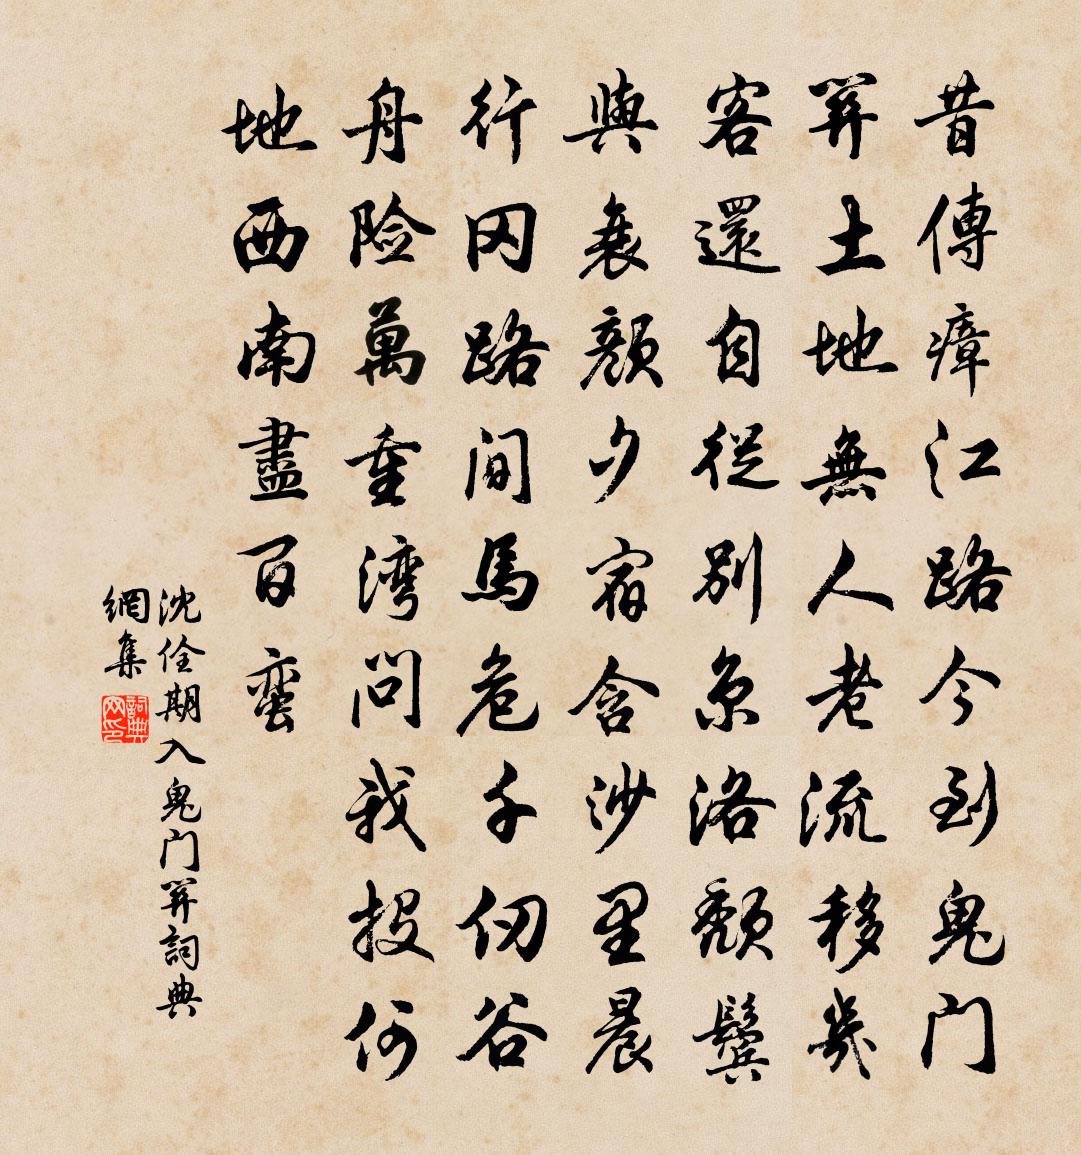 昔傳瘴江路今到鬼門
關土地無人老流移幾
客還自從別京洛頹鬢
與衰顏夕宿含沙里晨
行岡路間馬危千仞谷
舟險萬重灣問我投何
地西南盡百蠻
沈佺期入鬼門關詞典
網集
詞典网印